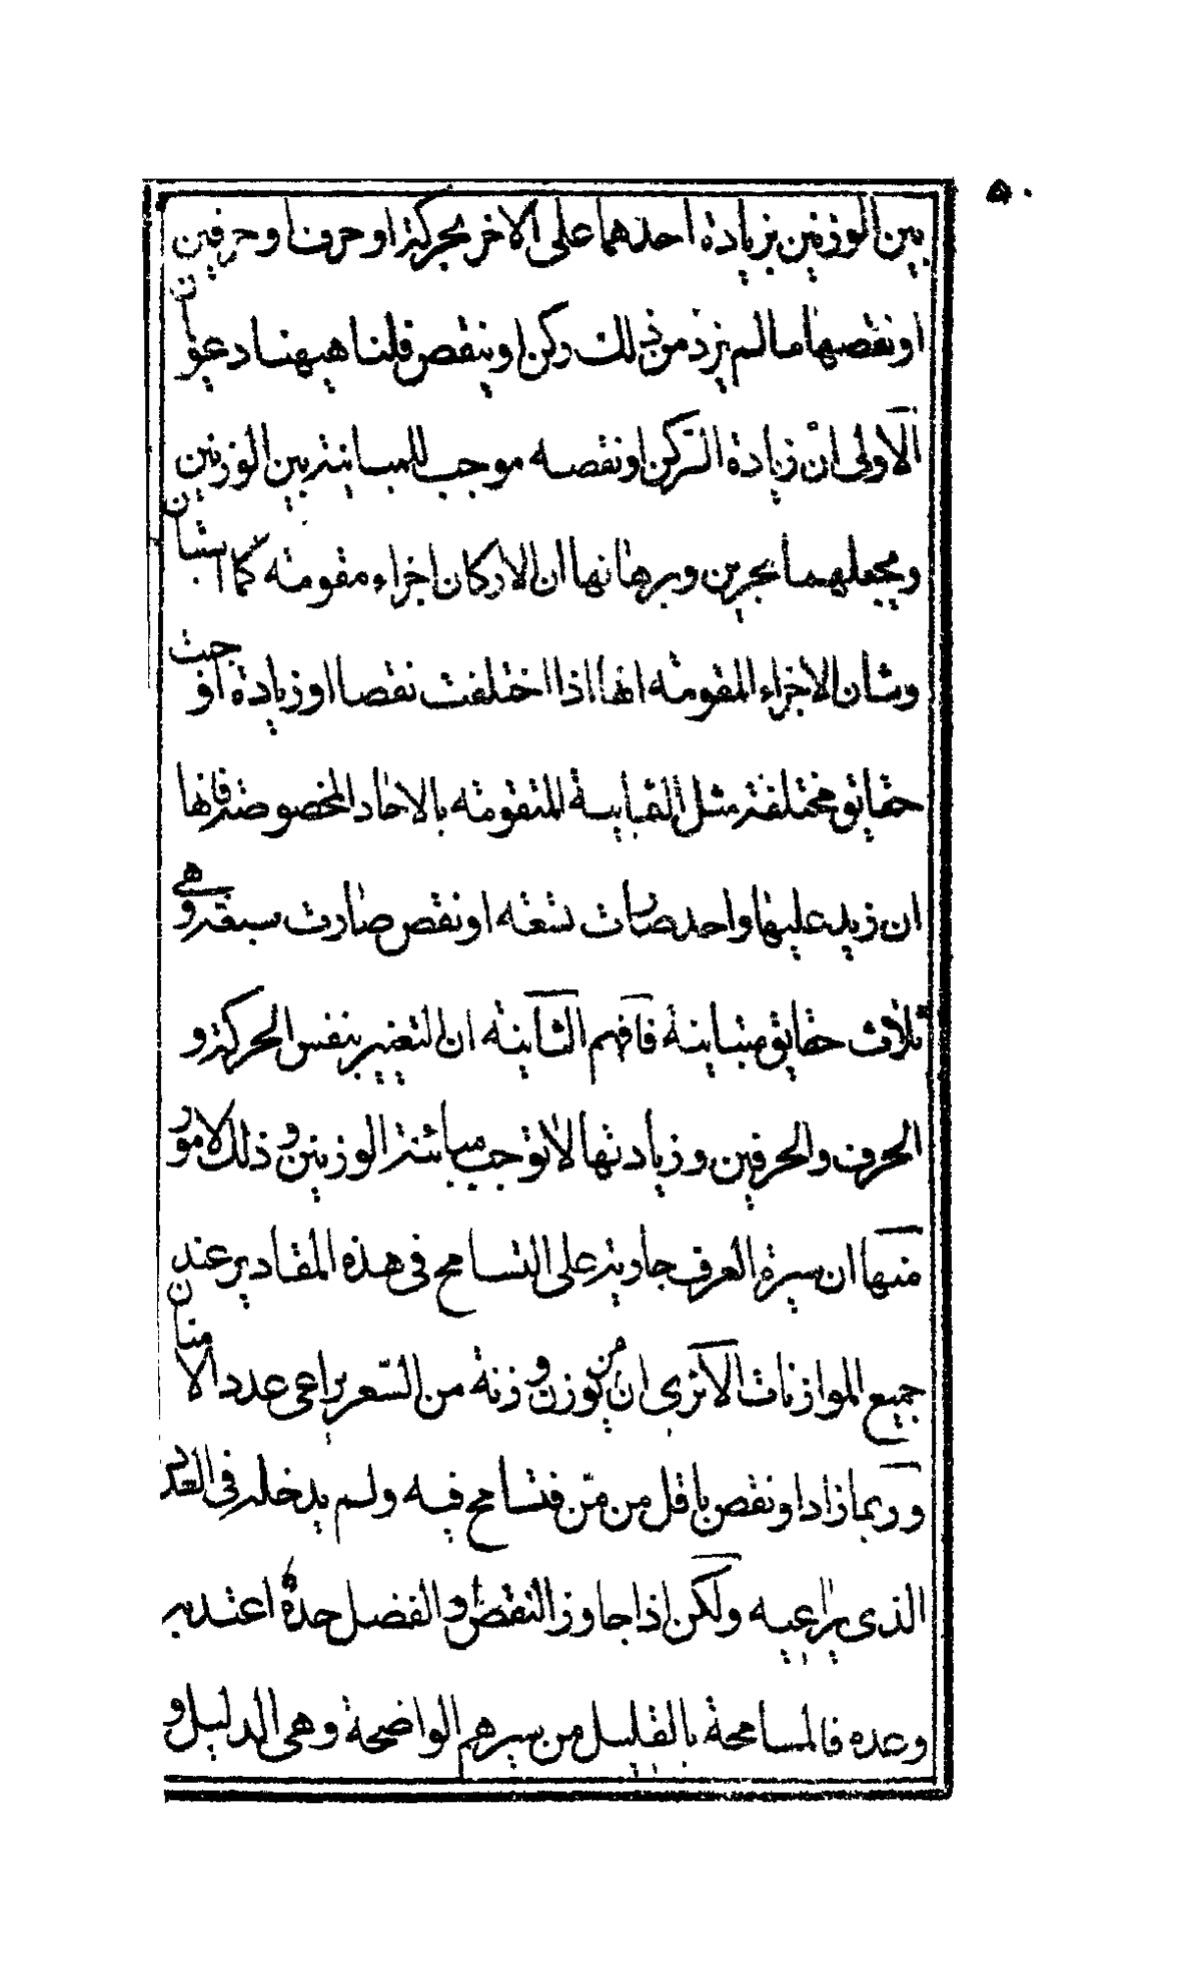 ۵۰
بين الوزنين بزيادة احدهما على الاخر بحركة او حرف او حرفين
او نقصها ما لم يزد من ذلك ركن او ينقص قلنا هيهنا دعويان
الاولى ان زيادة الركن او نقصه موجب للمباينة بين الوزنين
ويجعلهما بحرين وبرهانها ان الاركان اجزاء مقومة كما استبان
وشان الاجزاء المقومة انها اذا اختلفت نقصا او زيادة اوجبت
حقايق مختلفة مثل الثمانية المتقومة بالاحاد المخصوصة فانها
ان زيد عليها واحد صارت تسعة او نقص صارت سبعة وهي
ثلاث حقايق متباينة فافهم الثانية ان التغيير بنفس الحركة و
الحرف والحرفين وزيادتها لا توجب مباينة الوزنين وذلك لامور
منها ان سيرة العرف جارية على التسامح في هذه المقادير عند
جميع الموازنات الا ترى ان من يوزن وزنة من السعر يراعى عدد الامنان
وربما زاد او نقص باقل من منّ فتسامح فيه ولم يدخله في العدد
الذى يراعيه ولكن اذا جاوز النقص والفضل حده اعتد به
وعده فالمسامحة بالقليل من سيرهم الواضحة وهى الدليل و